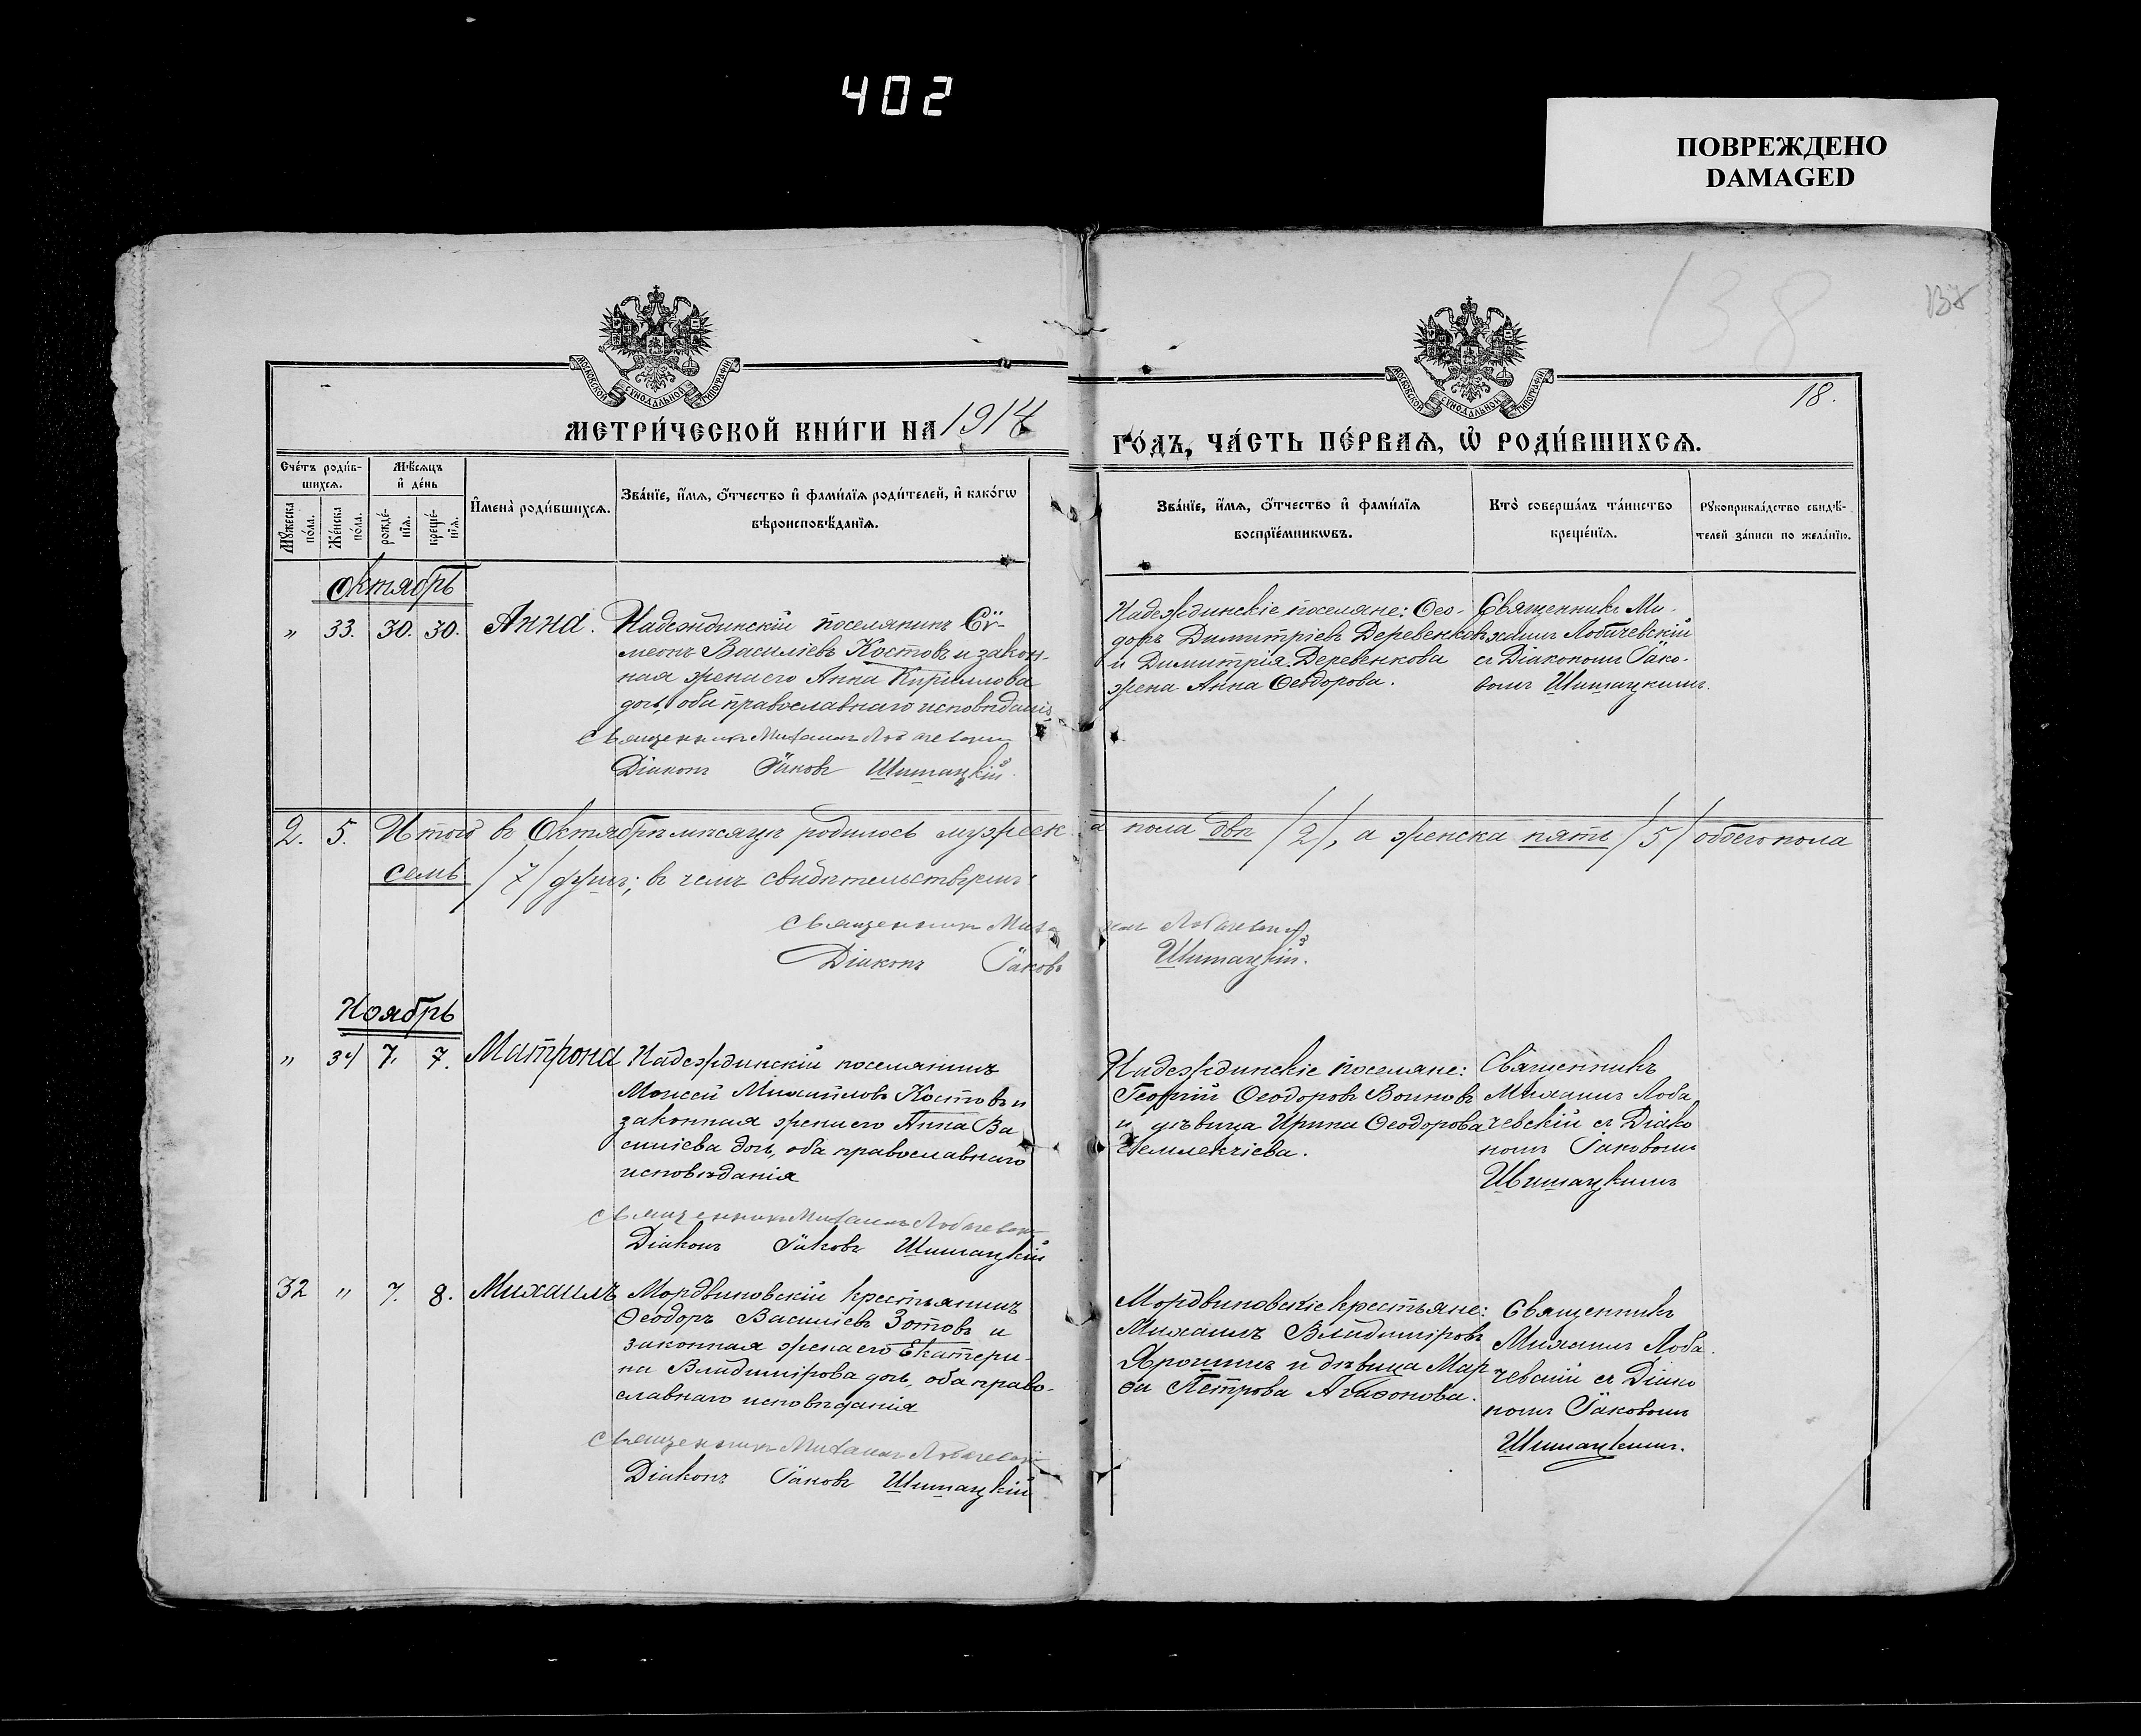 402
ПОВРЕЖДЕНО
DAMAGED
138
138
18.
МОСКОВСКОЙ СУНОДАЛЬНОЙ ТИПОГРАФІИ
МОСКОВСКОЙ СУНОДАЛЬНОЙ ТИПОГРАФІИ
МЕТРИ́ЧЕСКОЙ КНИ́ГИ НА 1914 ГО́ДЪ, ЧА́СТЬ ПЕ́РВАѦ, Ѡ҆ РОДИ́ВШИХСѦ.
Сче́тъ роди́в-
шихсѧ.
Мѣ́сѧцъ
и҆ де́нь
Мꙋ́жеска
по́ла.
Же́нска
по́ла.
рожде́-
нїѧ.
креще́-
нїѧ.
И҆мена̀ роди́вшихсѧ.
Зва́нїе, и҆́мѧ, ѻ҆́тчество и҆ фами́лїѧ роди́телей, и҆ како́гѡ
вѣроисповѣ́данїѧ.
Зва́нїе, и҆́мѧ, ѻ҆́тчество и҆ фами́лїѧ
воспрїе́мникѡвъ.
Кто̀ соверша́лъ та́инство
креще́нїѧ.
Рꙋкоприкла́дство свидѣ́-
телей за́писи по жела́нїю.
Октябрь
„ 33. 30. 30. Анна.
Надеждинскій поселянинъ Сѵ-
меонъ Василіевъ Костовъ и закон-
ная жена его Анна Кириллова
дочь, оба православнаго исповѣданія
Священникъ Михаилъ Лобачевскій
Діаконъ Іаковъ Шишацкій
Надеждинскіе поселяне: Ѳео-
доръ Димитріевъ Деревенковъ
и Димитрія Деревенкова
жена Анна Ѳеодорова.
Священникъ Ми-
хаилъ Лобачевскій
съ Діакономъ Іако-
вомъ Шишацкимъ.
2. 5. Итого въ Октябрѣ мѣсяцѣ родилось мужеска пола два /2/, а женска пять /5/ обоего пола
семь /7/ душъ; въ чемъ свидѣтельствуемъ
Священникъ Михаилъ Лобачевскій
Діаконъ Іаковъ Шишацкій.
Ноябрь
„ 34 7. 7. Матрона
Надеждинскій поселянинъ
Моисей Михайловъ Костовъ и
законная жена его Анна Ва
силіева дочь, оба православнаго
исповѣданія
Священникъ Михаилъ Лобачевскій
Діаконъ Іаковъ Шишацкій
Надеждинскіе поселяне:
Георгій Ѳеодоровъ Воиновъ
и дѣвица Ирина Ѳеодорова
Священникъ
Михаилъ Лоба
чевскій съ Діако
номъ Іаковомъ
Шишацкимъ
32 „ 7. 8. Михаилъ
Мордвиновскій крестьянинъ
Ѳеодоръ Василіевъ Зотовъ и
законная жена его Екатери-
на Владимірова дочь, оба право-
славнаго исповѣданія
Священникъ Михаилъ Лобачевскій
Діаконъ Іаковъ Шишацкій
Мордвиновскіе крестьяне:
Михаилъ Владиміровъ
Ярошинъ и дѣвица Мар
ѳа Петрова Агаѳонова.
Священникъ
Михаилъ Лоба
чевскій съ Діако
номъ Іаковомъ
Шишацкимъ.